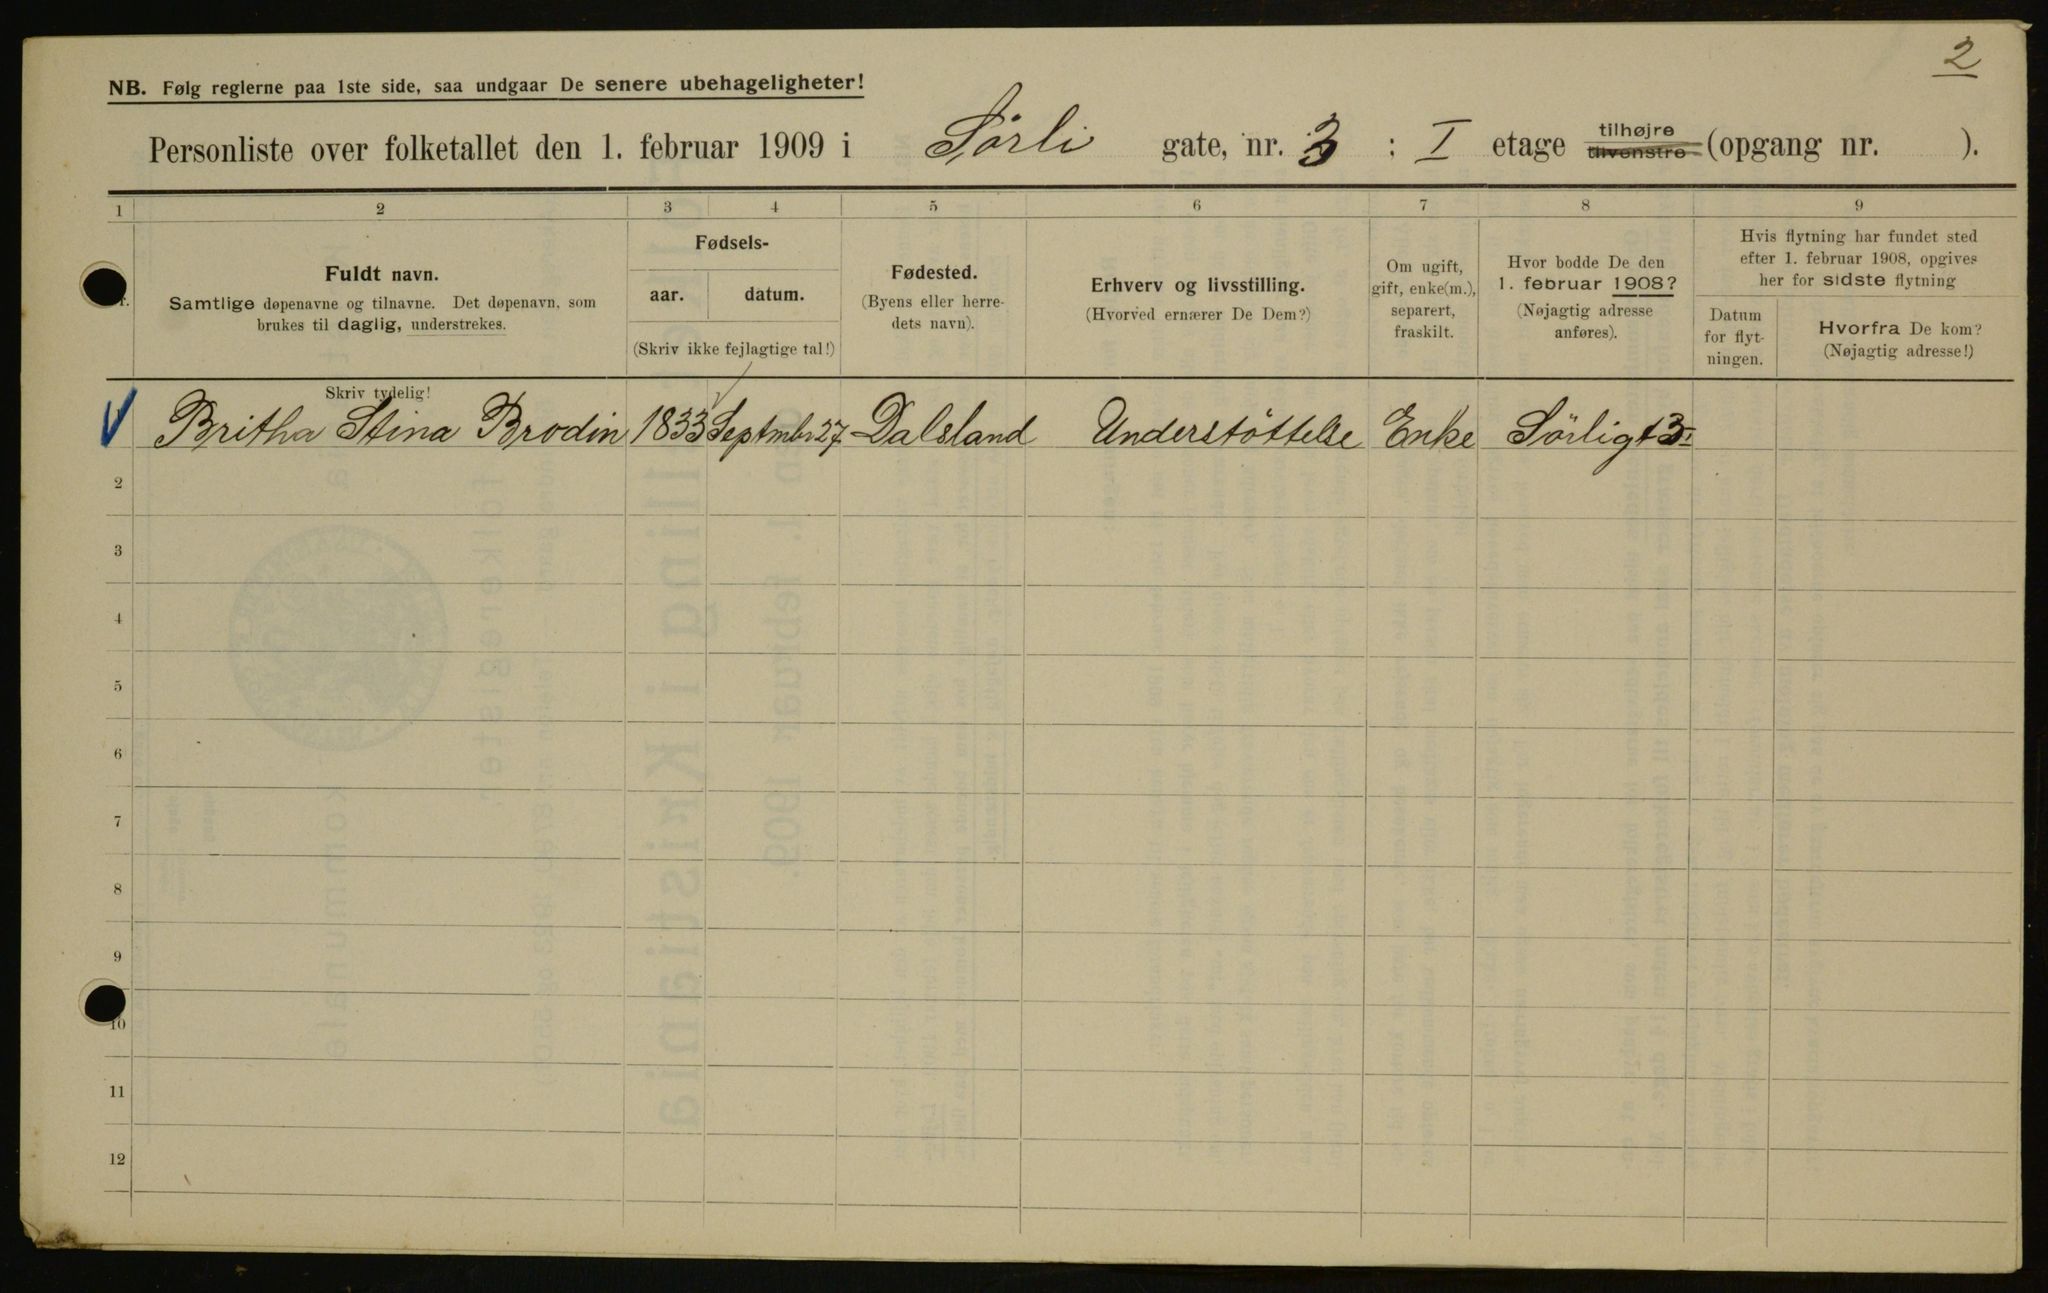 2
NB. Følg reglerne paa 1ste side, saa undgaar De senere ubehageligheter!
Personliste over folketallet den 1. februar 1909 i Sörli gate, nr. 3 : I etage tilhøjre tilvenstre (opgang nr. ).
1 2 3 4 5 6 7 8 9
Fuldt navn.
Samtlige døpenavne og tilnavne. Det døpenavn, som
brukes til daglig, understrekes.
Skriv tydelig!
Fødsels-
aar. datum.
(Skriv ikke fejlagtige tal!)
Fødested.
(Byens eller herre-
dets navn).
Erhverv og livsstilling.
(Hvorved ernærer De Dem?)
Om ugift,
gift, enke(m.),
separert,
fraskilt.
Hvor bodde De den
1. februar 1908?
(Nøjagtig adresse
anføres).
Hvis flytning har fundet sted
efter 1. februar 1908, opgives
her for sidste flytning
Datum
for flyt-
ningen.
Hvorfra De kom?
(Nøjagtig adresse!)
Britha Stina Brodin 1833 Septmbr 27 Dalsland Understöttelse Enke Sörligt 3 I
2
3
4
5
6
7
8
9
10
11
12